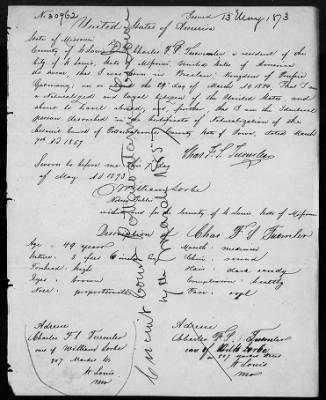 N. 30962 Issued 13 May 1873
United States of America
State of Missouri
County of St Louis Charles F. S. Tuemler a resident of the
City of St Louis, State of Missouri, United States of America
do swear, that I was born in Breslau, Kingdom of
Germany, on or about the 29 day of March AD 1824. That I am
a Naturalized and loyal citizen of the United States, and
about to travel abroad, and further that I am the identical
person described in the Certificate of Naturalization of the
Circuit Court of Pottawattamie County State of Iowa, dated March
7th AD 1857
Chas F. S. Tuemler
Sworn to before me this 7 day
of May AD 1873
William
Notary Public
within and for County of St Louis, State of Missouri
Description of Chas F. S. Tuemler
Age : 49 years Mouth : medium
Stature : 5 feet
Forehead : high Chin : round
Eyes : brown Hair : dark sandy
Nose : proportionate Complexion : healthy
Face : oval
Adress
Charles F S Tuemler
care of William
Market St
St Louis
Mo
Adress
Charles F. S. Tuemler
care of
St Louis
Mo
Circuit Court Pottawattamie
7th March 1857